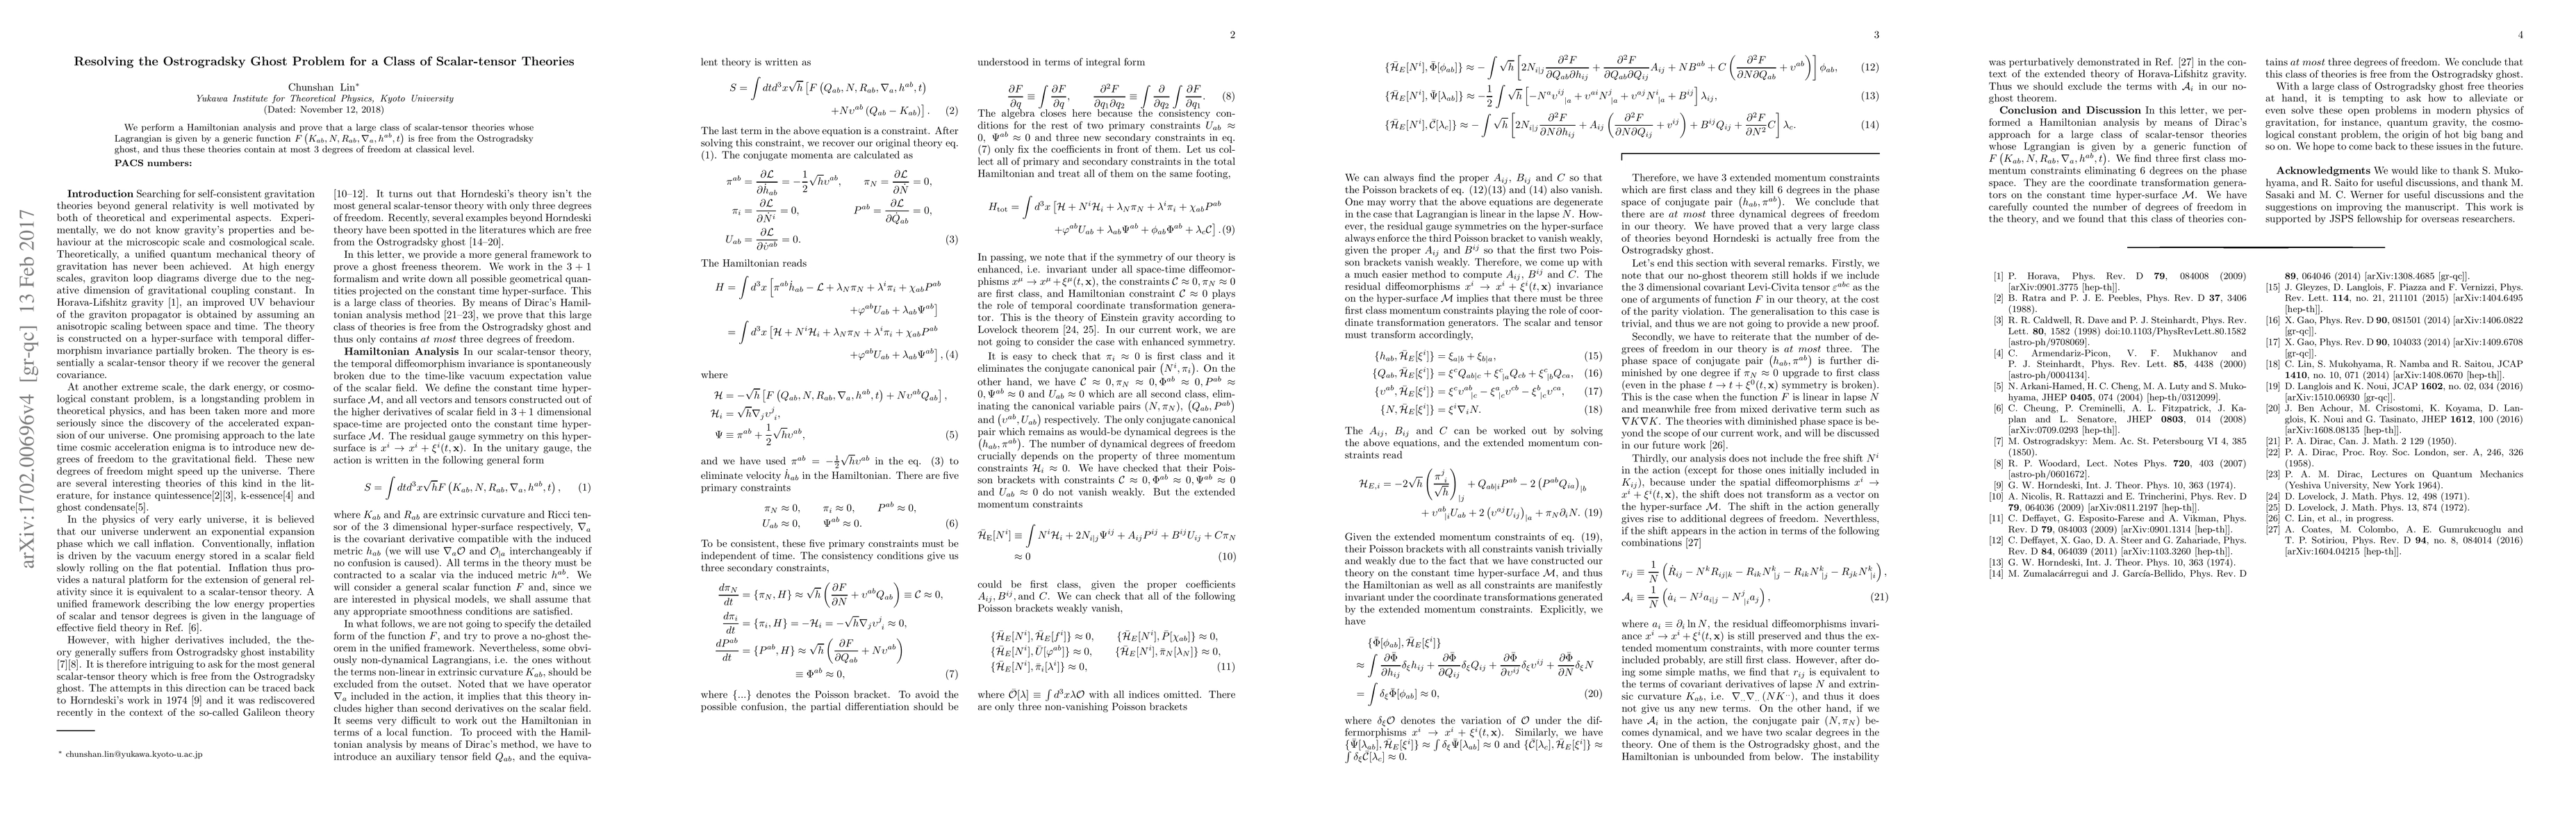 arXiv:1702.00696v4 [gr-qc] 13 Feb 2017
Resolving the Ostrogradsky Ghost Problem for a Class of Scalar-tensor Theories
Chunshan Lin*
Yukawa Institute for Theoretical Physics, Kyoto University
(Dated: November 12, 2018)
We perform a Hamiltonian analysis and prove that a large class of scalar-tensor theories whose
Lagrangian is given by a generic function F (K_ab, N, R_ab, ∇_a, h^ab, t) is free from the Ostrogradsky
ghost, and thus these theories contain at most 3 degrees of freedom at classical level.
PACS numbers:
Introduction Searching for self-consistent gravitation
theories beyond general relativity is well motivated by
both of theoretical and experimental aspects. Experi-
mentally, we do not know gravity's properties and be-
haviour at the microscopic scale and cosmological scale.
Theoretically, a unified quantum mechanical theory of
gravitation has never been achieved. At high energy
scales, graviton loop diagrams diverge due to the neg-
ative dimension of gravitational coupling constant. In
Horava-Lifshitz gravity [1], an improved UV behaviour
of the graviton propagator is obtained by assuming an
anisotropic scaling between space and time. The theory
is constructed on a hyper-surface with temporal differ-
morphism invariance partially broken. The theory is es-
sentially a scalar-tensor theory if we recover the general
covariance.
At another extreme scale, the dark energy, or cosmo-
logical constant problem, is a longstanding problem in
theoretical physics, and has been taken more and more
seriously since the discovery of the accelerated expan-
sion of our universe. One promising approach to the late
time cosmic acceleration enigma is to introduce new de-
grees of freedom to the gravitational field. These new
degrees of freedom might speed up the universe. There
are several interesting theories of this kind in the lit-
erature, for instance quintessence[2][3], k-essence[4] and
ghost condensate[5].
In the physics of very early universe, it is believed
that our universe underwent an exponential expansion
phase which we call inflation. Conventionally, inflation
is driven by the vacuum energy stored in a scalar field
slowly rolling on the flat potential. Inflation thus pro-
vides a natural platform for the extension of general rel-
ativity since it is equivalent to a scalar-tensor theory. A
unified framework describing the low energy properties
of scalar and tensor degrees is given in the language of
effective field theory in Ref. [6].
However, with higher derivatives included, the the-
ory generally suffers from Ostrogradsky ghost instability
[7][8]. It is therefore intriguing to ask for the most general
scalar-tensor theory which is free from the Ostrogradsky
ghost. The attempts in this direction can be traced back
to Horndeski's work in 1974 [9] and it was rediscovered
recently in the context of the so-called Galileon theory
* chunshan.lin@yukawa.kyoto-u.ac.jp
[10–12]. It turns out that Horndeski's theory isn't the
most general scalar-tensor theory with only three degrees
of freedom. Recently, several examples beyond Horndeski
theory have been spotted in the literatures which are free
from the Ostrogradsky ghost [14–20].
In this letter, we provide a more general framework to
prove a ghost freeness theorem. We work in the 3 + 1
formalism and write down all possible geometrical quan-
tities projected on the constant time hyper-surface. This
is a large class of theories. By means of Dirac's Hamil-
tonian analysis method [21–23], we prove that this large
class of theories is free from the Ostrogradsky ghost and
thus only contains at most three degrees of freedom.
Hamiltonian Analysis In our scalar-tensor theory,
the temporal diffeomorphism invariance is spontaneously
broken due to the time-like vacuum expectation value
of the scalar field. We define the constant time hyper-
surface M, and all vectors and tensors constructed out of
the higher derivatives of scalar field in 3 + 1 dimensional
space-time are projected onto the constant time hyper-
surface M. The residual gauge symmetry on this hyper-
surface is x^i → x^i + ξ^i(t, x). In the unitary gauge, the
action is written in the following general form
S = ∫ dtd³x√h F (K_ab, N, R_ab, ∇_a, h^ab, t) , (1)
where K_ab and R_ab are extrinsic curvature and Ricci ten-
sor of the 3 dimensional hyper-surface respectively, ∇_a
is the covariant derivative compatible with the induced
metric h_ab (we will use ∇_a O and O_|a interchangeably if
no confusion is caused). All terms in the theory must be
contracted to a scalar via the induced metric h^ab. We
will consider a general scalar function F and, since we
are interested in physical models, we shall assume that
any appropriate smoothness conditions are satisfied.
In what follows, we are not going to specify the detailed
form of the function F, and try to prove a no-ghost the-
orem in the unified framework. Nevertheless, some obvi-
ously non-dynamical Lagrangians, i.e. the ones without
the terms non-linear in extrinsic curvature K_ab, should be
excluded from the outset. Noted that we have operator
∇_a included in the action, it implies that this theory in-
cludes higher than second derivatives on the scalar field.
It seems very difficult to work out the Hamiltonian in
terms of a local function. To proceed with the Hamil-
tonian analysis by means of Dirac's method, we have to
introduce an auxiliary tensor field Q_ab, and the equiva-
2
lent theory is written as
S = ∫ dtd³x√h [F (Q_ab, N, R_ab, ∇_a, h^ab, t)
+Nv^ab (Q_ab − K_ab)] . (2)
The last term in the above equation is a constraint. After
solving this constraint, we recover our original theory eq.
(1). The conjugate momenta are calculated as
π^ab = ∂L/∂ḣ_ab = −½√h v^ab, π_N = ∂L/∂Ṅ = 0,
π_i = ∂L/∂Ṅ^i = 0, P^ab = ∂L/∂Q̇_ab = 0,
U_ab = ∂L/∂v̇^ab = 0. (3)
The Hamiltonian reads
H = ∫ d³x [π^ab ḣ_ab − L + λ_N π_N + λ^i π_i + χ_ab P^ab
+φ^ab U_ab + λ_ab Ψ^ab]
= ∫ d³x [H + N^i H_i + λ_N π_N + λ^i π_i + χ_ab P^ab
+φ^ab U_ab + λ_ab Ψ^ab] , (4)
where
H = −√h [F (Q_ab, N, R_ab, ∇_a, h^ab, t) + Nv^ab Q_ab] ,
H_i = √h ∇_j v^j_i,
Ψ ≡ π^ab + ½√h v^ab, (5)
and we have used π^ab = −½√h v^ab in the eq. (3) to
eliminate velocity ḣ_ab in the Hamiltonian. There are five
primary constraints
π_N ≈ 0, π_i ≈ 0, P^ab ≈ 0,
U_ab ≈ 0, Ψ^ab ≈ 0. (6)
To be consistent, these five primary constraints must be
independent of time. The consistency conditions give us
three secondary constraints,
dπ_N/dt = {π_N, H} ≈ √h (∂F/∂N + v^ab Q_ab) ≡ C ≈ 0,
dπ_i/dt = {π_i, H} = −H_i = −√h ∇_j v^j_i ≈ 0,
dP^ab/dt = {P^ab, H} ≈ √h (∂F/∂Q_ab + Nv^ab)
≡ Φ^ab ≈ 0, (7)
where {...} denotes the Poisson bracket. To avoid the
possible confusion, the partial differentiation should be
understood in terms of integral form
∂F/∂q ≡ ∫ ∂F/∂q, ∂²F/∂q₁∂q₂ ≡ ∫ ∂/∂q₂ ∫ ∂F/∂q₁. (8)
The algebra closes here because the consistency con-
ditions for the rest of two primary constraints U_ab ≈
0, Ψ^ab ≈ 0 and three new secondary constraints in eq.
(7) only fix the coefficients in front of them. Let us col-
lect all of primary and secondary constraints in the total
Hamiltonian and treat all of them on the same footing,
H_tot = ∫ d³x [H + N^i H_i + λ_N π_N + λ^i π_i + χ_ab P^ab
+φ^ab U_ab + λ_ab Ψ^ab + ϕ_ab Φ^ab + λ_c C] .(9)
In passing, we note that if the symmetry of our theory is
enhanced, i.e. invariant under all space-time diffeomor-
phisms x^μ → x^μ + ξ^μ(t, x), the constraints C ≈ 0, π_N ≈ 0
are first class, and Hamiltonian constraint C ≈ 0 plays
the role of temporal coordinate transformation genera-
tor. This is the theory of Einstein gravity according to
Lovelock theorem [24, 25]. In our current work, we are
not going to consider the case with enhanced symmetry.
It is easy to check that π_i ≈ 0 is first class and it
eliminates the canonical pair (N^i, π_i). On the
other hand, we have C ≈ 0, π_N ≈ 0, Φ^ab ≈ 0, P^ab ≈
0, Ψ^ab ≈ 0 and U_ab ≈ 0 which are all second class, elim-
inating the canonical variable pairs (N, π_N), (Q_ab, P^ab)
and (v^ab, U_ab) respectively. The only conjugate canonical
pair which remains as would-be dynamical degrees is the
(h_ab, π^ab). The number of dynamical degrees of freedom
crucially depends on the property of three momentum
constraints H_i ≈ 0. We have checked that their Pois-
son brackets with constraints C ≈ 0, Φ^ab ≈ 0, Ψ^ab ≈ 0
and U_ab ≈ 0 do not vanish weakly. But the extended
momentum constraints
H̄_E[N^i] ≡ ∫ N^i H_i + 2N_i|j Ψ^ij + A_ij P^ij + B^ij U_ij + Cπ_N
≈ 0 (10)
could be first class, given the proper coefficients
A_ij, B^ij, and C. We can check that all of the following
Poisson brackets weakly vanish,
{H̄_E[N^i], H̄_E[f^i]} ≈ 0, {H̄_E[N^i], P̄[χ_ab]} ≈ 0,
{H̄_E[N^i], Ū[φ^ab]} ≈ 0, {H̄_E[N^i], π̄_N[λ_N]} ≈ 0,
{H̄_E[N^i], π̄_i[λ^i]} ≈ 0, (11)
where Ō[λ] ≡ ∫ d³xλO with all indices omitted. There
are only three non-vanishing Poisson brackets
3
{H̄_E[N^i], Φ̄[ϕ_ab]} ≈ −∫ √h [2N_i|j ∂²F/∂Q_ab∂h_ij + ∂²F/∂Q_ab∂Q_ij A_ij + NB^ab + C (∂²F/∂N∂Q_ab + v^ab)] ϕ_ab, (12)
{H̄_E[N^i], Ψ̄[λ_ab]} ≈ −½ ∫ √h [−N^a v^ij_|a + v^ai N^j_|a + v^aj N^i_|a + B^ij] λ_ij, (13)
{H̄_E[N^i], C̄[λ_c]} ≈ −∫ √h [2N_i|j ∂²F/∂N∂h_ij + A_ij (∂²F/∂N∂Q_ij + v^ij) + B^ij Q_ij + ∂²F/∂N² C] λ_c. (14)
We can always find the proper A_ij, B_ij and C so that
the Poisson brackets of eq. (12)(13) and (14) also vanish.
One may worry that the above equations are degenerate
in the case that Lagrangian is linear in the lapse N. How-
ever, the residual gauge symmetries on the hyper-surface
always enforce the third Poisson bracket to vanish weakly,
given the proper A_ij and B^ij so that the first two Pois-
son brackets vanish weakly. Therefore, we come up with
a much easier method to compute A_ij, B^ij and C. The
residual diffeomorphisms x^i → x^i + ξ^i(t, x) invariance
on the hyper-surface M implies that there must be three
first class momentum constraints playing the role of coor-
dinate transformation generators. The scalar and tensor
must transform accordingly,
{h_ab, H̄_E[ξ^i]} = ξ_a|b + ξ_b|a, (15)
{Q_ab, H̄_E[ξ^i]} = ξ^c Q_ab|c + ξ^c_|a Q_cb + ξ^c_|b Q_ca, (16)
{v^ab, H̄_E[ξ^i]} = ξ^c v^ab_|c − ξ^a_|c v^cb − ξ^b_|c v^ca, (17)
{N, H̄_E[ξ^i]} = ξ^i ∇_i N. (18)
The A_ij, B_ij and C can be worked out by solving
the above equations, and the extended momentum con-
straints read
H_E,i = −2√h (π^j_i/√h)_|j + Q_ab|i P^ab − 2 (P^ab Q_ia)_|b
+ v^ab_|i U_ab + 2 (v^aj U_ij)_|a + π_N ∂_i N. (19)
Given the extended momentum constraints of eq. (19),
their Poisson brackets with all constraints vanish trivially
and weakly due to the fact that we have constructed our
theory on the constant time hyper-surface M, and thus
the Hamiltonian as well as all constraints are manifestly
invariant under the coordinate transformations generated
by the extended momentum constraints. Explicitly, we
have
{Φ̄[ϕ_ab], H̄_E[ξ^i]}
≈ ∫ ∂Φ̄/∂h_ij δ_ξ h_ij + ∂Φ̄/∂Q_ij δ_ξ Q_ij + ∂Φ̄/∂v^ij δ_ξ v^ij + ∂Φ̄/∂N δ_ξ N
= ∫ δ_ξ Φ̄[ϕ_ab] ≈ 0, (20)
where δ_ξ O denotes the variation of O under the dif-
fermorphisms x^i → x^i + ξ^i(t, x). Similarly, we have
{Ψ̄[λ_ab], H̄_E[ξ^i]} ≈ ∫ δ_ξ Ψ̄[λ_ab] ≈ 0 and {C̄[λ_c], H̄_E[ξ^i]} ≈
∫ δ_ξ C̄[λ_c] ≈ 0.
Therefore, we have 3 extended momentum constraints
which are first class and they kill 6 degrees in the phase
space of conjugate pair (h_ab, π^ab). We conclude that
there are at most three dynamical degrees of freedom
in our theory. We have proved that a very large class
of theories beyond Horndeski is actually free from the
Ostrogradsky ghost.
Let's end this section with several remarks. Firstly, we
note that our no-ghost theorem still holds if we include
the 3 dimensional covariant Levi-Civita tensor ε^abc as the
one of arguments of function F in our theory, at the cost
of the parity violation. The generalisation to this case is
trivial, and thus we are not going to provide a new proof.
Secondly, we have to reiterate that the number of de-
grees of freedom in our theory is at most three. The
phase space of conjugate pair (h_ab, π^ab) is further di-
minished by one degree if π_N ≈ 0 upgrade to first class
(even in the phase t → t + ξ⁰(t, x) symmetry is broken).
This is the case when the function F is linear in lapse N
and meanwhile free from mixed derivative term such as
∇K∇K. The theories with diminished phase space is be-
yond the scope of our current work, and will be discussed
in our future work [26].
Thirdly, our analysis does not include the free shift N^i
in the action (except for those ones initially included in
K_ij), because under the spatial diffeomorphisms x^i →
x^i + ξ^i(t, x), the shift does not transform as a vector on
the hyper-surface M. The shift in the action generally
gives rise to additional degrees of freedom. Nevertheless,
if the shift appears in the action in terms of the following
combinations [27]
r_ij ≡ 1/N (Ṙ_ij − N^k R_ij|k − R_ik N^k_|j − R_ik N^k_|j − R_jk N^k_|i) ,
A_i ≡ 1/N (ȧ_i − N^j a_i|j − N^j_|i a_j) , (21)
where a_i ≡ ∂_i ln N, the residual diffeomorphisms invari-
ance x^i → x^i + ξ^i(t, x) is still preserved and thus the ex-
tended momentum constraints, with more counter terms
included probably, are still first class. However, after do-
ing some simple maths, we find that r_ij is equivalent to
the terms of covariant derivatives of lapse N and extrin-
sic curvature K_ab, i.e. ∇..∇.. (NK^..), and thus it does
not give us any new terms. On the other hand, if we
have A_i in the action, the conjugate pair (N, π_N) be-
comes dynamical, and we have two scalar degrees in the
theory. One of them is the Ostrogradsky ghost, and the
Hamiltonian is unbounded from below. The instability
4
was perturbatively demonstrated in Ref. [27] in the con-
text of the extended theory of Horava-Lifshitz gravity.
Thus we should exclude the terms with A_i in our no-
ghost theorem.
Conclusion and Discussion In this letter, we per-
formed a Hamiltonian analysis by means of Dirac's
approach for a large class of scalar-tensor theories
whose Lgrangian is given by a generic function of
F (K_ab, N, R_ab, ∇_a, h^ab, t). We find three first class mo-
mentum constraints eliminating 6 degrees in the phase
space. They are the coordinate transformation genera-
tors on the constant time hyper-surface M. We have
carefully counted the number of degrees of freedom in
the theory, and we found that this class of theories con-
tains at most three degrees of freedom. We conclude that
this class of theories is free from the Ostrogradsky ghost.
With a large class of Ostrogradsky ghost free theories
at hand, it is tempting to ask how to alleviate or
even solve these open problems in modern physics of
gravitation, for instance, quantum gravity, the cosmo-
logical constant problem, the origin of hot big bang and
so on. We hope to come back to these issues in the future.
Acknowledgments We would like to thank S. Muko-
hyama, and R. Saito for useful discussions, and thank M.
Sasaki and M. C. Werner for useful discussions and the
suggestions on improving the manuscript. This work is
supported by JSPS fellowship for overseas researchers.
[1] P. Horava, Phys. Rev. D 79, 084008 (2009)
[arXiv:0901.3775 [hep-th]].
[2] B. Ratra and P. J. E. Peebles, Phys. Rev. D 37, 3406
(1988).
[3] R. R. Caldwell, R. Dave and P. J. Steinhardt, Phys. Rev.
Lett. 80, 1582 (1998) doi:10.1103/PhysRevLett.80.1582
[astro-ph/9708069].
[4] C. Armendariz-Picon, V. F. Mukhanov and
P. J. Steinhardt, Phys. Rev. Lett. 85, 4438 (2000)
[astro-ph/0004134].
[5] N. Arkani-Hamed, H. C. Cheng, M. A. Luty and S. Muko-
hyama, JHEP 0405, 074 (2004) [hep-th/0312099].
[6] C. Cheung, P. Creminelli, A. L. Fitzpatrick, J. Ka-
plan and L. Senatore, JHEP 0803, 014 (2008)
[arXiv:0709.0293 [hep-th]].
[7] M. Ostrogradskyy: Mem. Ac. St. Petersbourg VI 4, 385
(1850).
[8] R. P. Woodard, Lect. Notes Phys. 720, 403 (2007)
[astro-ph/0601672].
[9] G. W. Horndeski, Int. J. Theor. Phys. 10, 363 (1974).
[10] A. Nicolis, R. Rattazzi and E. Trincherini, Phys. Rev. D
79, 064036 (2009) [arXiv:0811.2197 [hep-th]].
[11] C. Deffayet, G. Esposito-Farese and A. Vikman, Phys.
Rev. D 79, 084003 (2009) [arXiv:0901.1314 [hep-th]].
[12] C. Deffayet, X. Gao, D. A. Steer and G. Zahariade, Phys.
Rev. D 84, 064039 (2011) [arXiv:1103.3260 [hep-th]].
[13] G. W. Horndeski, Int. J. Theor. Phys. 10, 363 (1974).
[14] M. Zumalacárregui and J. García-Bellido, Phys. Rev. D
89, 064046 (2014) [arXiv:1308.4685 [gr-qc]].
[15] J. Gleyzes, D. Langlois, F. Piazza and F. Vernizzi, Phys.
Rev. Lett. 114, no. 21, 211101 (2015) [arXiv:1404.6495
[hep-th]].
[16] X. Gao, Phys. Rev. D 90, 081501 (2014) [arXiv:1406.0822
[gr-qc]].
[17] X. Gao, Phys. Rev. D 90, 104033 (2014) [arXiv:1409.6708
[gr-qc]].
[18] C. Lin, S. Mukohyama, R. Namba and R. Saitou, JCAP
1410, no. 10, 071 (2014) [arXiv:1408.0670 [hep-th]].
[19] D. Langlois and K. Noui, JCAP 1602, no. 02, 034 (2016)
[arXiv:1510.06930 [gr-qc]].
[20] J. Ben Achour, M. Crisostomi, K. Koyama, D. Lan-
glois, K. Noui and G. Tasinato, JHEP 1612, 100 (2016)
[arXiv:1608.08135 [hep-th]].
[21] P. A. Dirac, Can. J. Math. 2 129 (1950).
[22] P. A. Dirac, Proc. Roy. Soc. London, ser. A, 246, 326
(1958).
[23] P. A. M. Dirac, Lectures on Quantum Mechanics
(Yeshiva University, New York 1964).
[24] D. Lovelock, J. Math. Phys. 12, 498 (1971).
[25] D. Lovelock, J. Math. Phys. 13, 874 (1972).
[26] C. Lin, et al., in progress.
[27] A. Coates, M. Colombo, A. E. Gumrukcuoglu and
T. P. Sotiriou, Phys. Rev. D 94, no. 8, 084014 (2016)
[arXiv:1604.04215 [hep-th]].